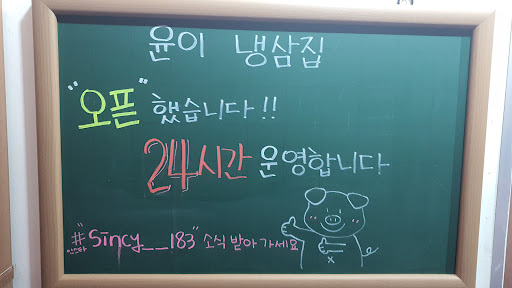 윤이 냉삼집
"오픈" 했습니다!!
24시간 운영합니다
#인스타 "Sincy__183" 소식 받아가세요
x